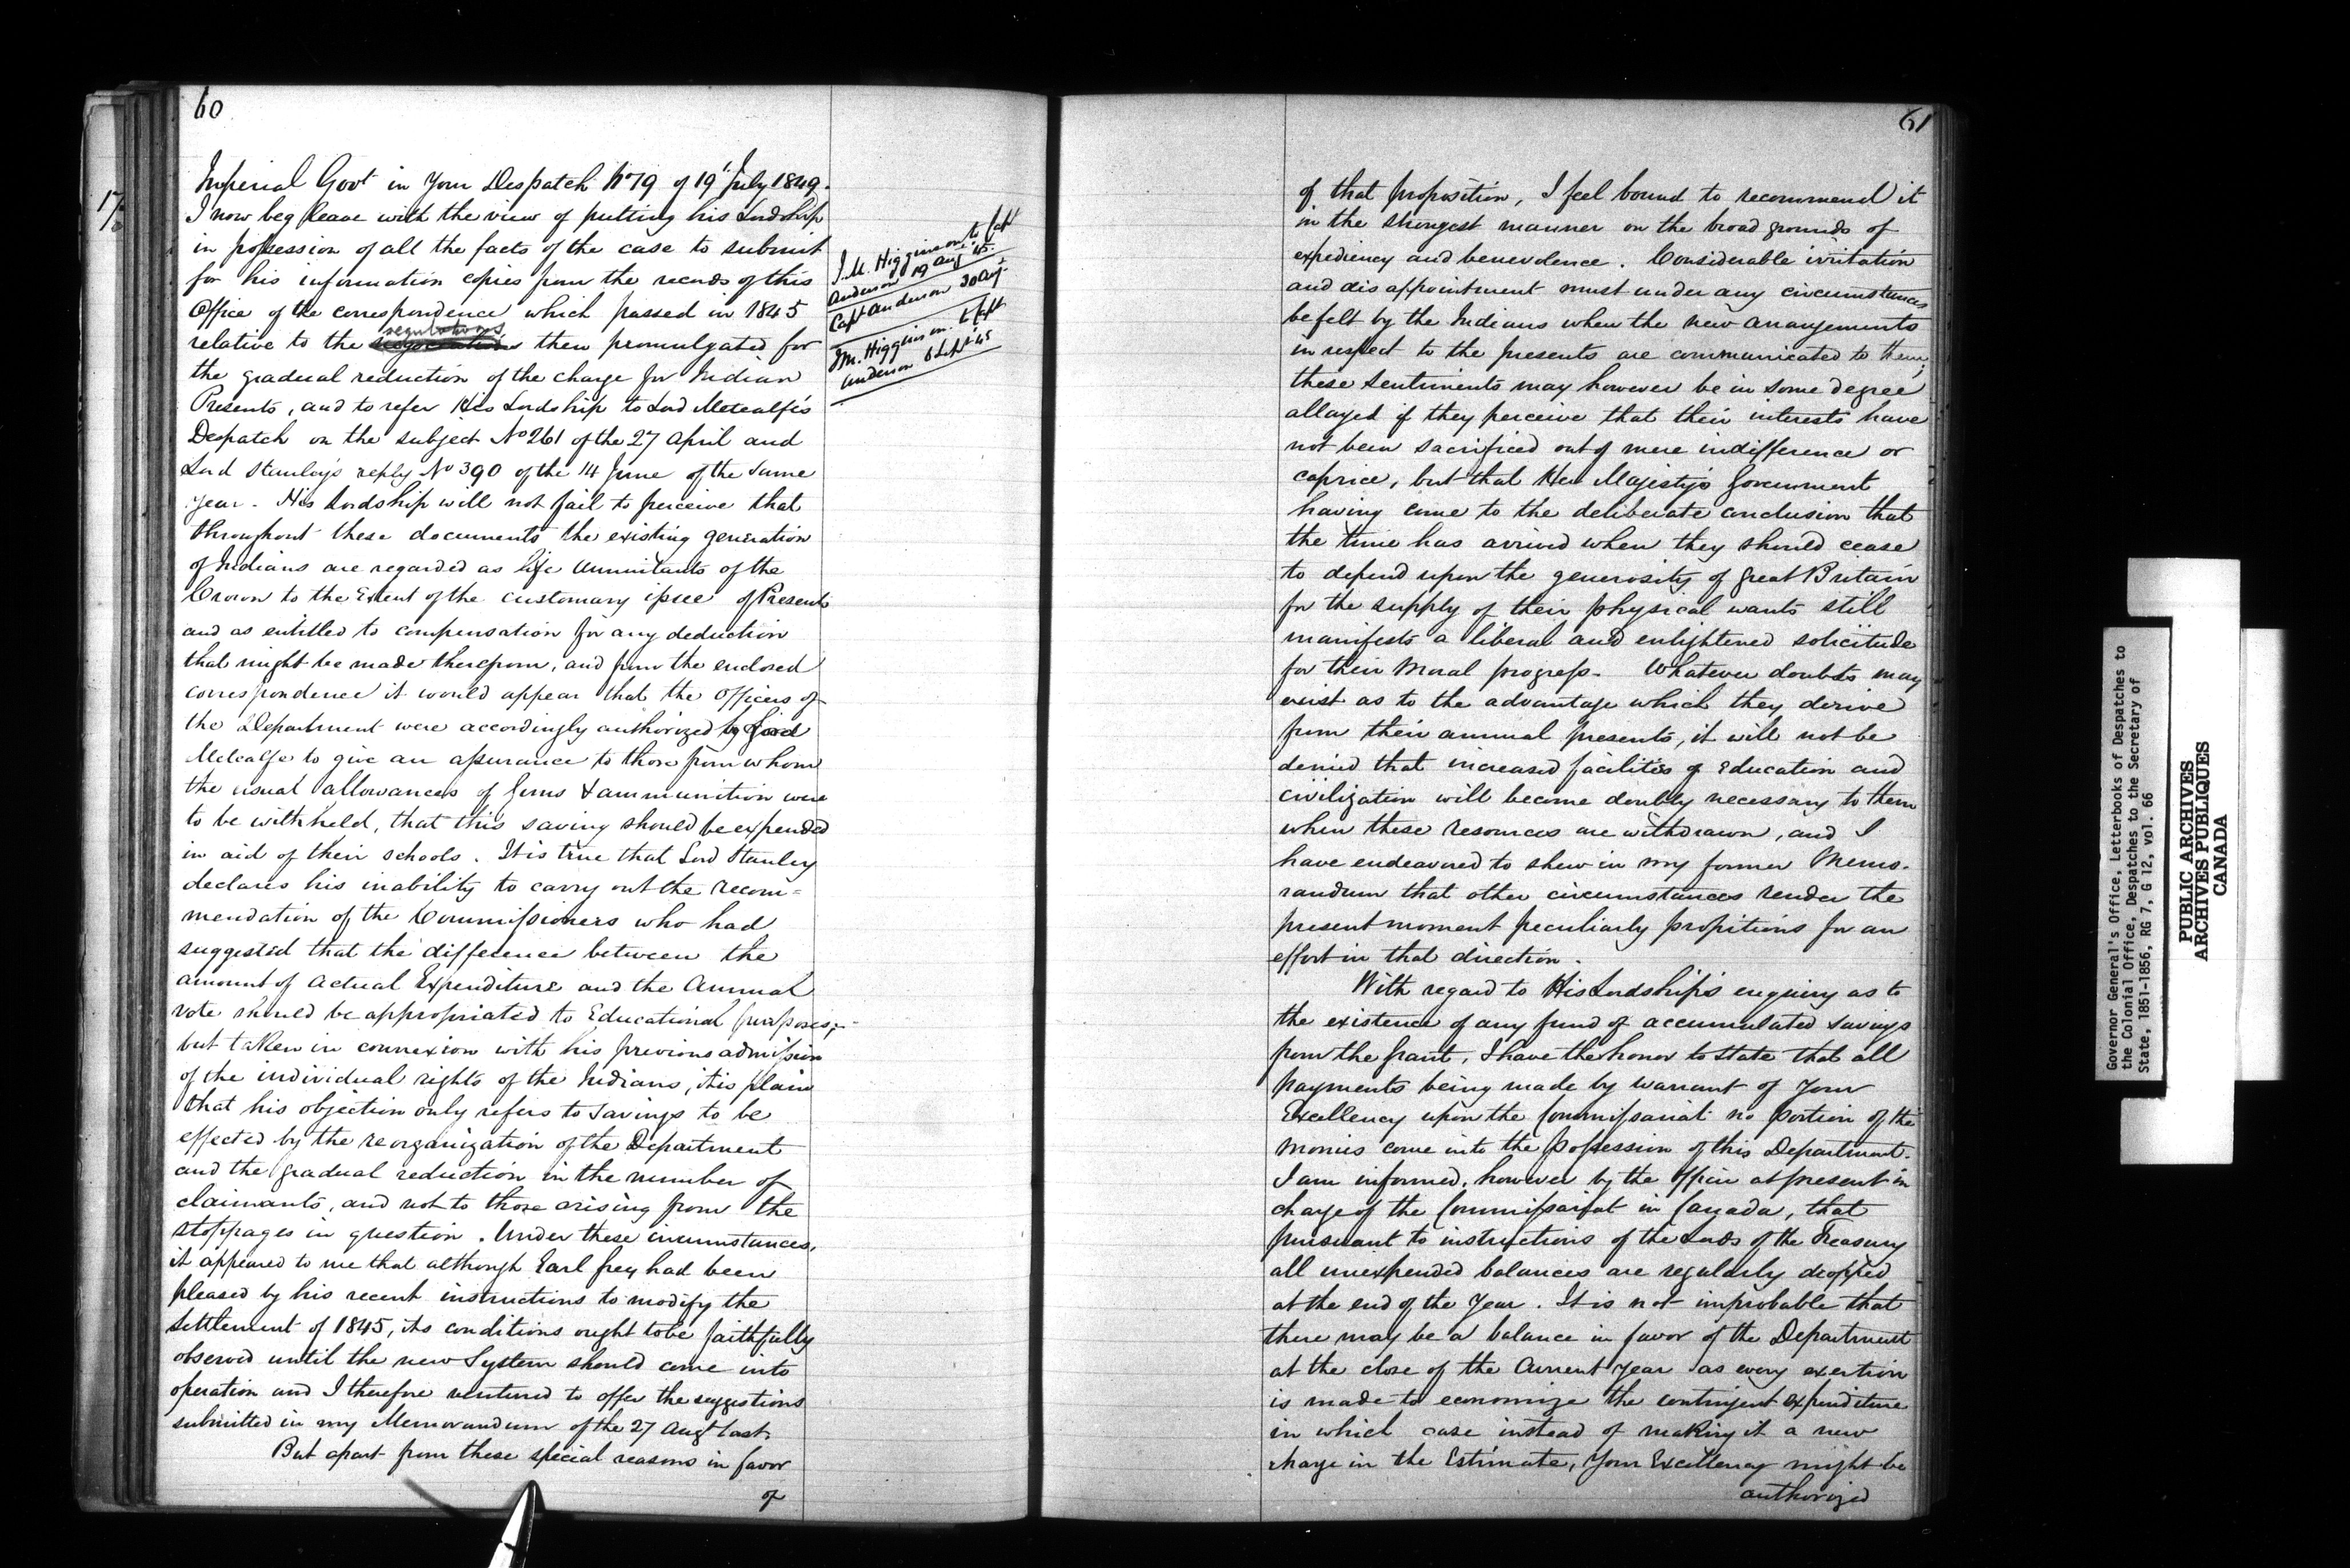 60
Imperial Govt in Your Despatch No 79 of 19 July 1849.
I now beg leave with the view of putting his Lordship
in possession of all the facts of the case to submit
for his information copies from the records of this
Office of the correspondence which passed in 1845
regulations
relative to the negociations then promulgated for
the gradual reduction of the charge for Indian
Presents, and to refer His Lordship to Lord Metcalfe's
Despatch on the subject No 261 of the 27 April and
Lord Stanley's reply No 390 of the 14 June of the same
year. His Lordship will not fail to perceive that
throughout these documents the existing generation
of Indians are regarded as life annuitants of the
Crown to the Extent of the customary issue of Presents
and as entitled to compensation for any deduction
that might be made therefrom, and from the enclosed
correspondence it would appear that the Officers of
the Department were accordingly authorized by Lord
Metcalfe to give an assurance to those from whom
the usual allowances of Guns & ammunition were
to be withheld, that this saving should be expended
in aid of their schools. It is true that Lord Stanley
declares his inability to carry out the recom=
mendation of the Commissioners who had
suggested that the difference between the
amount of actual Expenditure and the Annual
vote should be appropriated to Educational purposes;
but taken in connexion with his previous admission
of the individual rights of the Indians, it is plain
that his objection only refers to savings to be
effected by the reorganization of the Department
and the gradual reduction in the number of
claimants, and not to those arising from the
stoppages in question. Under these circumstances,
it appeared to me that although Earl Grey had been
pleased by his recent instructions to modify the
settlement of 1845, its conditions ought to be faithfully
observed until the new System should come into
operation and I therefore ventured to offer the suggestions
submitted in my Memorandum of the 27 Augt last.
But apart from these special reasons in favor
of
J.M. Higginson to Capt
Anderson 19 Aug '45.
Capt Anderson 30 Aug.
J.M. Higginson to Capt
Anderson 6 Sept '45
61
of that proposition, I feel bound to recommend it
in the strongest manner on the broad grounds of
expediency and benevolence. Considerable irritation
and disappointment must under any circumstances
be felt by the Indians when the new arrangements
in respect to the presents are communicated to them;
these sentiments may however be in some degree
allayed if they perceive that their interests have
not been sacrificed out of mere indifference or
caprice, but that Her Majesty's Government
having come to the deliberate conclusion that
the time has arrived when they should cease
to depend upon the generosity of Great Britain
for the supply of their physical wants still
manifests a liberal and enlightened solicitude
for their Moral progress. Whatever doubts may
exist as to the advantage which they derive
from their annual presents, it will not be
denied that increased facilities of Education and
civilization will become doubly necessary to them
when these resources are withdrawn, and I
have endeavored to shew in my former Memo-
randum that other circumstances render the
present moment peculiarly propitious for an
effort in that direction.
With regard to His Lordship's enquiry as to
the existence of any fund of accumulated savings
from the Grant, I have the honor to state that all
payments being made by warrant of Your
Excellency upon the Commissariat no portion of the
monies come into the possession of this Department.
I am informed, however by the Officer at present in
charge of the Commissariat in Canada, that
pursuant to instructions of the Lords of the Treasury
all unexpended balances are regularly dropped
at the end of the Year. It is not improbable that
there may be a balance in favor of the Department
at the close of the Current Year as every exertion
is made to economize the contingent expenditure
in which case instead of making it a new
charge in the Estimate, Your Excellency might be
authorized
Governor General's Office, Letterbooks of Despatches to
the Colonial Office, Despatches to the Secretary of
State, 1851-1856, RG 7, G 12, vol. 66
PUBLIC ARCHIVES
ARCHIVES PUBLIQUES
CANADA